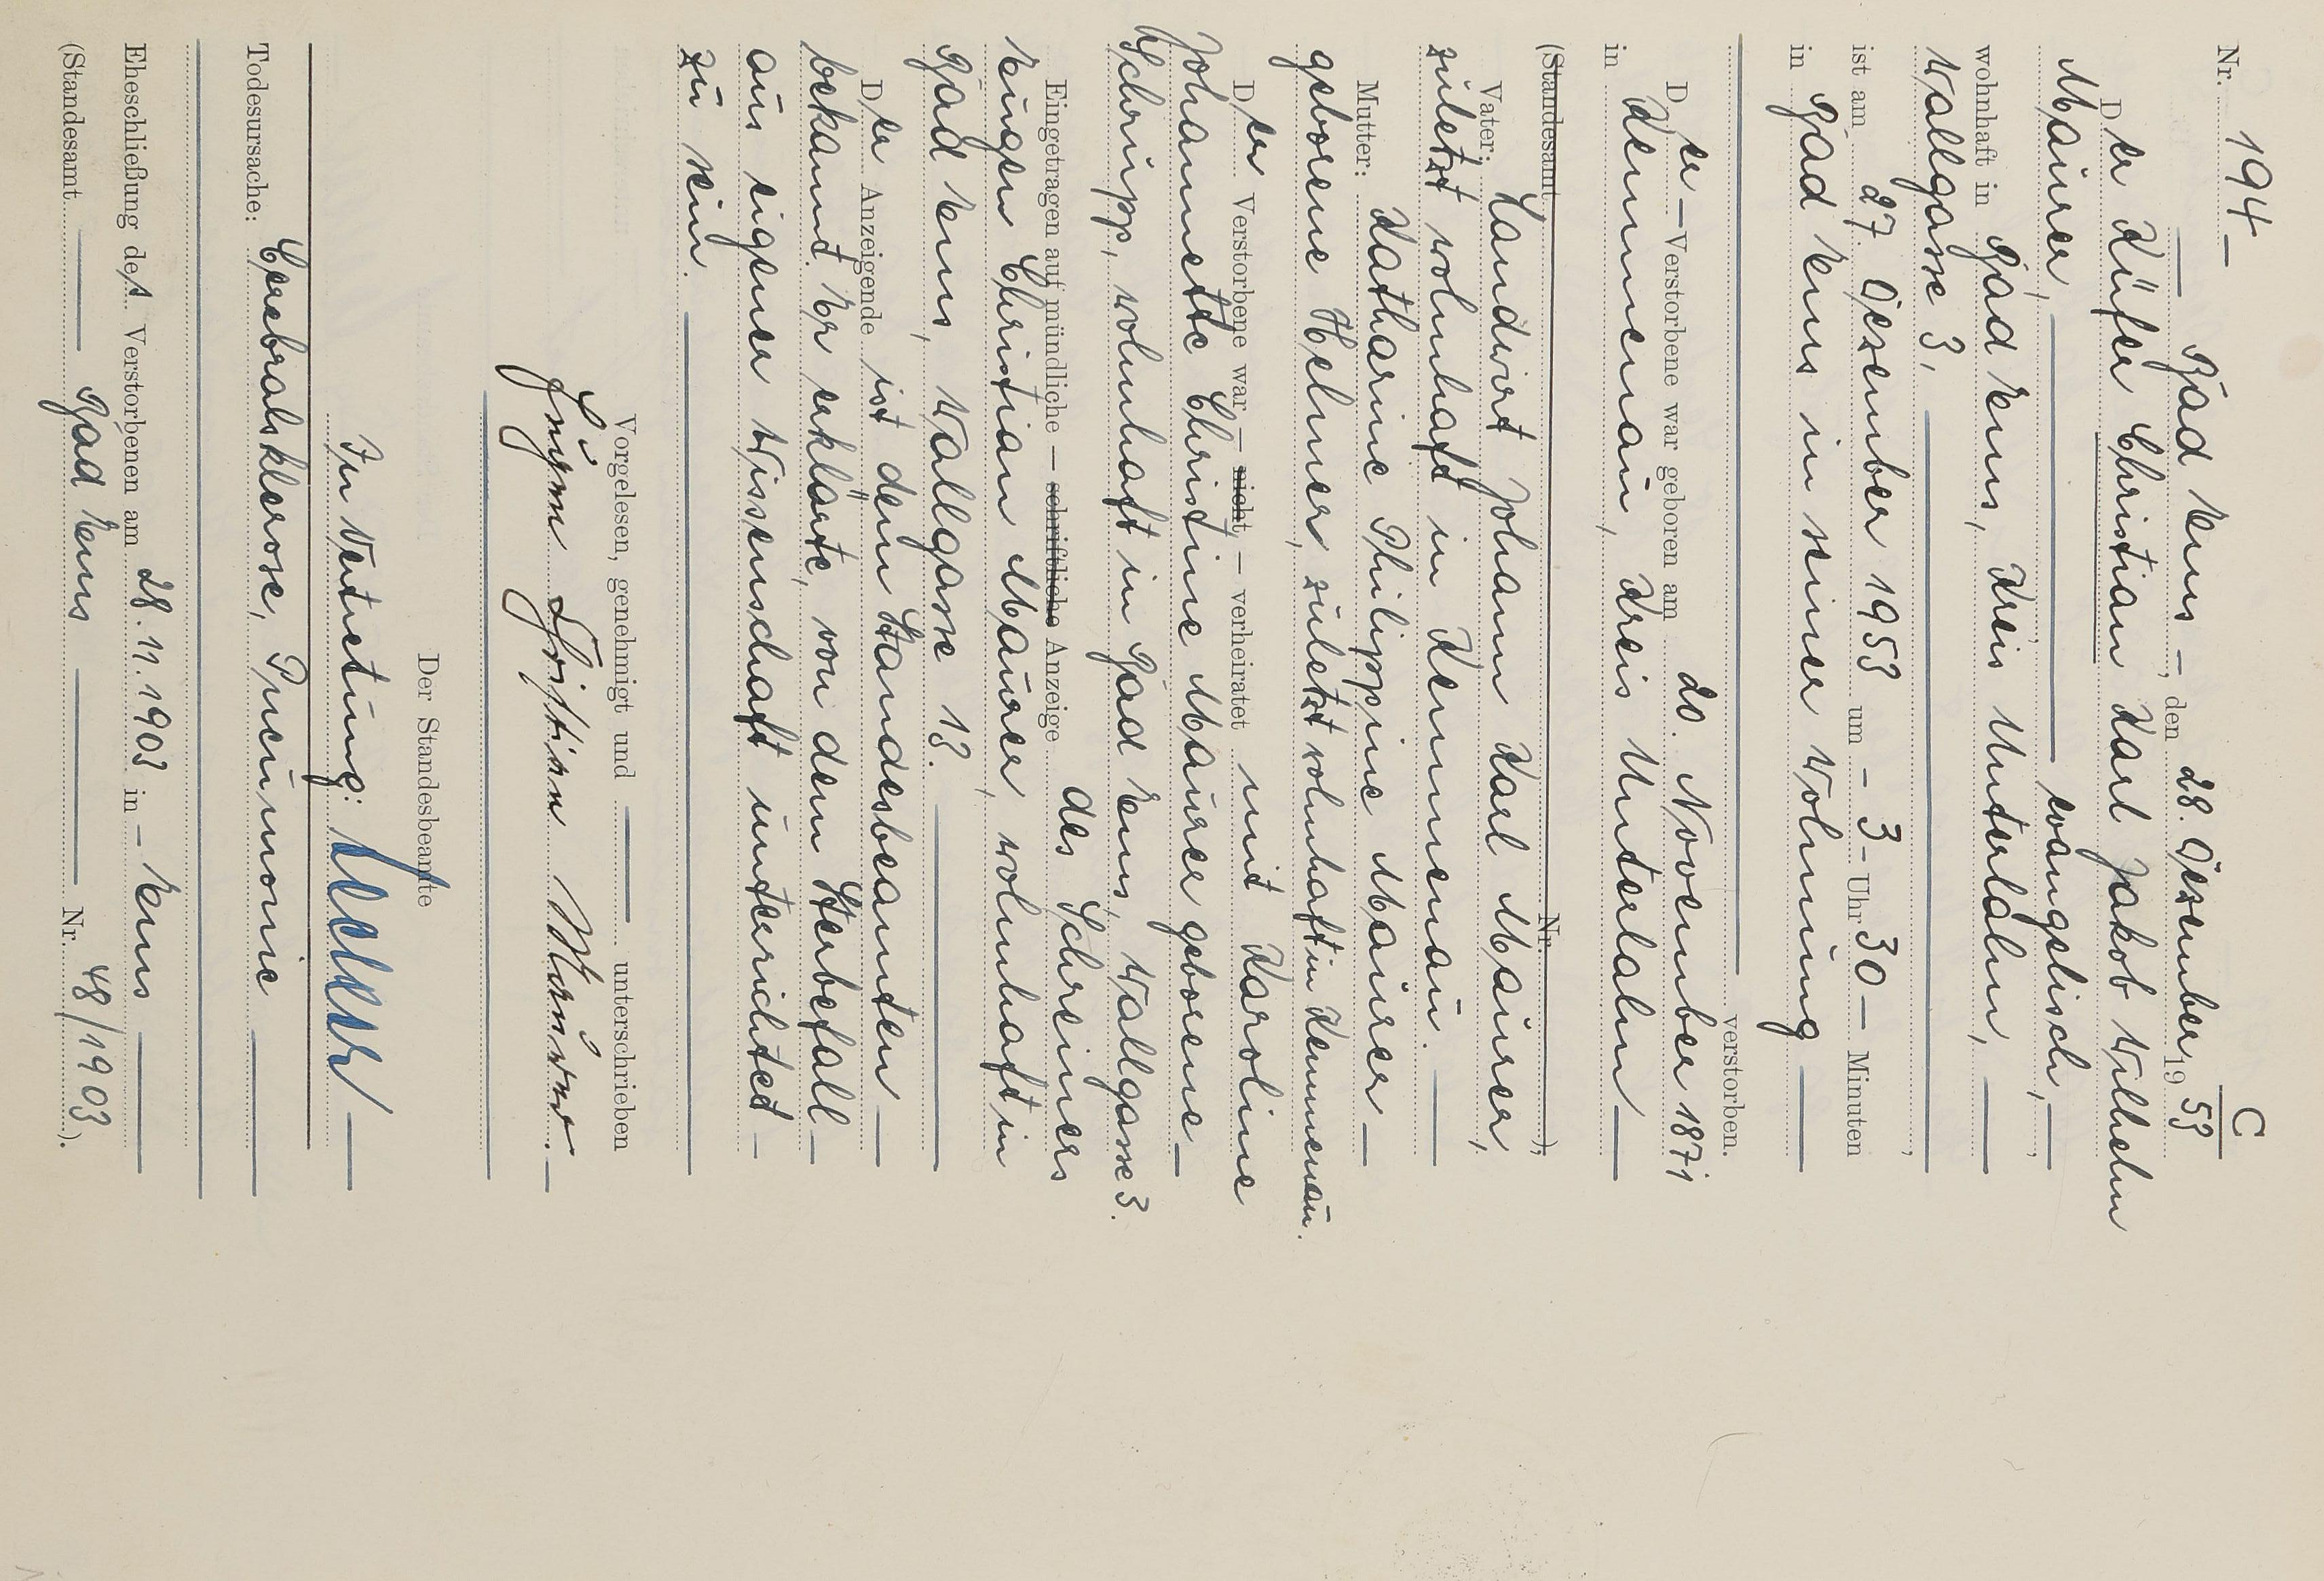 C
Nr. 194
Bad Ems, den 28. Dezember 1953
Der Küfer Christian Karl Jakob Wilhelm
Maurer, evangelisch,
wohnhaft in Bad Ems, Kreis Unterlahn,
Wallgasse 3,
ist am 27. Dezember 1953 um - 3 - Uhr 30 - Minuten
in Bad Ems in seiner Wohnung
verstorben.
Der - Verstorbene war geboren am 20. November 1871
in Kemmenau, Kreis Unterlahn
(Standesamt Nr. ),
Vater: Landwirt Johann Karl Maurer,
zuletzt wohnhaft in Kemmenau.
Mutter: Katharine Philippine Maurer
geborene Helmer, zuletzt wohnhaft in Kemmenau.
Der Verstorbene war - nicht - verheiratet mit Karoline
Johannette Christine Maurer geborene
Schrupp, wohnhaft in Bad Ems, Wallgasse 3.
Eingetragen auf mündliche - schriftliche Anzeige des Schreiners
Eugen Christian Maurer, wohnhaft in
Bad Ems, Wallgasse 13.
Der Anzeigende ist dem Standesbeamten
bekannt. Er erklärte, von dem Sterbefall
aus eigener Wissenschaft unterrichtet
zu sein.
Vorgelesen, genehmigt und unterschrieben
Eugen Christian Maurer.
Der Standesbeamte
In Vertretung:
Todesursache: Cerebralsklerose, Pneumonie
Eheschließung des Verstorbenen am 28.11.1903 in - Ems
(Standesamt Bad Ems Nr. 48/1903).